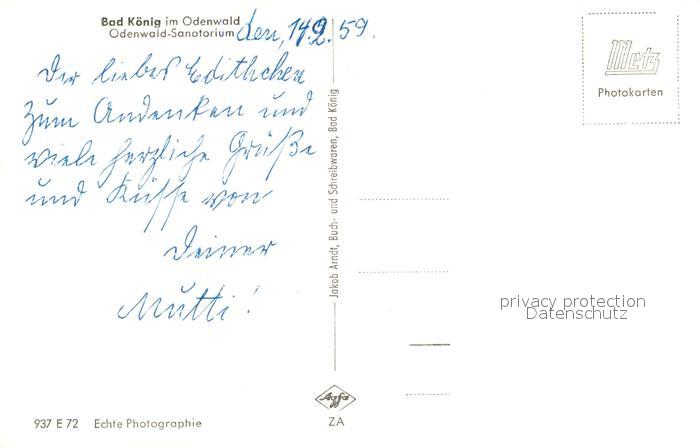 Bad König im Odenwald
Odenwald-Sanatorium
den, 14.9.59.
Metz
Photokarten
Der liebes Edithchen
zum Andenken und
viele herzliche Grüße
und Küsse von
Deiner
Mutti!
Jakob Arndt, Buch- und Schreibwaren, Bad König
privacy protection
Datenschutz
Agfa
937 E 72 Echte Photographie
ZA